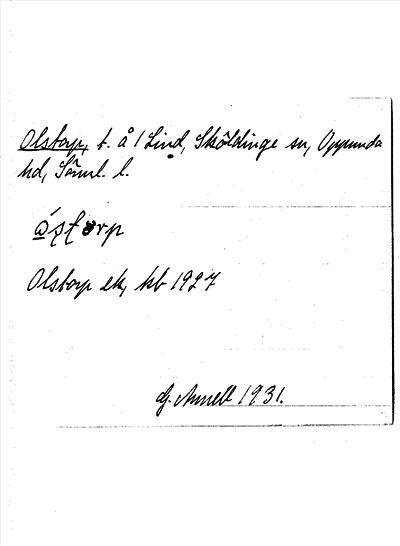 Olstorp, t. å 1 Lind, Sköldinge sn, Oppunda
hd, Söml. l.
Olstorp ek, kb 1927
G. Annell 1931.